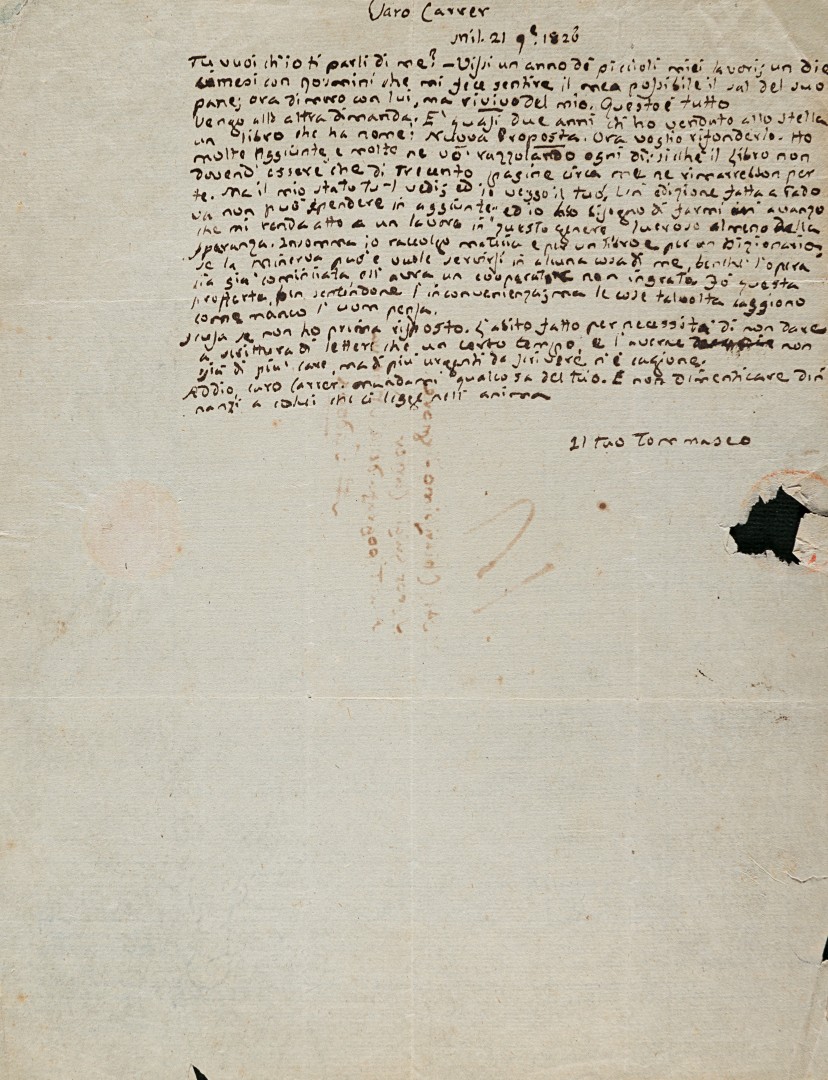 Caro Carrer
Mil. 21 9e. 1826
Tu vuoi ch'io ti parli di me? - Vissi un anno de' piccioli miei lavori; un die
cimesi con Rosmini che mi fece sentire il men possibile il sal del suo
pane; ora dimoro con lui, ma rivivo del mio. Questo è tutto
Vengo all'altra dimanda. E' quasi due anni ch'ho venduto allo Stella
un libro che ha nome: Nuova Proposta. Ora voglio rifonderlo. Ho
molte aggiunte, e molte ne vo' razzolando ogni dì: sicchè il libro non
dovend'essere che di trecento pagine circa me ne rimarrebbon per
te. Ma il mio stato tu-l vedi; ed io veggo il tuo. Un'edizione fatta a Pado
va non può spendere in aggiunte: ed io ho bisogno di farmi un avanzo
che mi renda atto a un lavoro in questo genere lucroso almeno della
speranza. Insomma io raccolgo materia e per un libro e per un Dizionario:
se la Minerva può e vuole servirsi in alcuna cosa di me, benchè l'opera
sia già cominciata ell'avrà un cooperatore non ingrato. Fo questa
proposta, pur sentendone l'inconvenienza; ma le cose talvolta caggiono
come manco l'uom pensa.
Scusa se non ho prima risposto. L'abito fatto per necessità di non dare
a scrittura di lettere che un certo tempo, e l'averne non
già di più care, ma di più urgenti da scrivere n'è cagione.
Addio, caro Carrer. Mandami qualcosa del tuo. E non dimenticare din
nanzi a colui che ci legge nell'anima
Il tuo Tommaseo